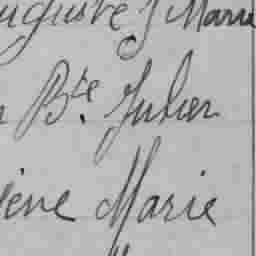 uguste J Marie
Bte. Julien
ène Marie